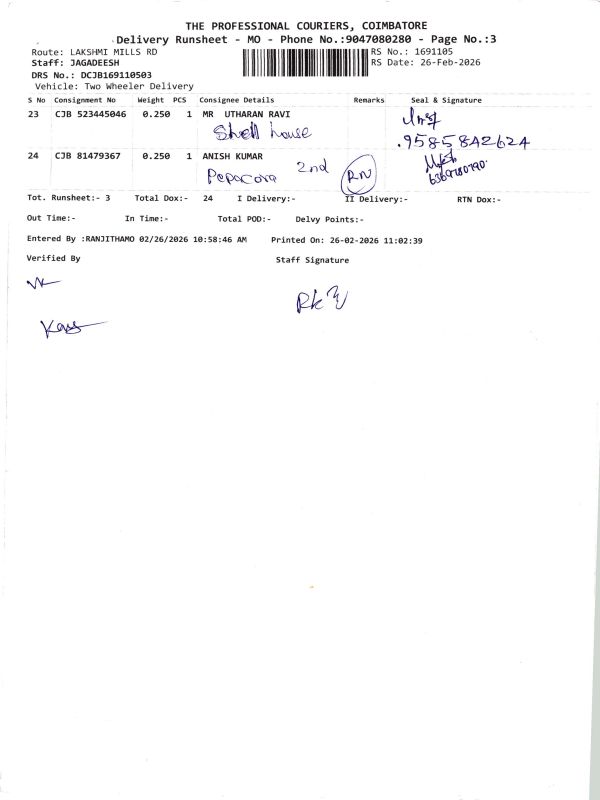 THE PROFESSIONAL COURIERS, COIMBATORE
Delivery Runsheet - MO - Phone No.:9047080280 - Page No.:3
Route: LAKSHMI MILLS RD RS No.: 1691105
Staff: JAGADEESH RS Date: 26-Feb-2026
DRS No.: DCJB169110503
Vehicle: Two Wheeler Delivery
S No Consignment No Weight PCS Consignee Details Remarks Seal & Signature
23 CJB 523445046 0.250 1 MR UTHARAN RAVI
Shell house .9585842624
24 CJB 81479367 0.250 1 ANISH KUMAR
2nd RN
Tot. Runsheet:- 3 Total Dox:- 24 I Delivery:- II Delivery:- RTN Dox:-
Out Time:- In Time:- Total POD:- Delvy Points:-
Entered By :RANJITHAMO 02/26/2026 10:58:46 AM Printed On: 26-02-2026 11:02:39
Verified By Staff Signature